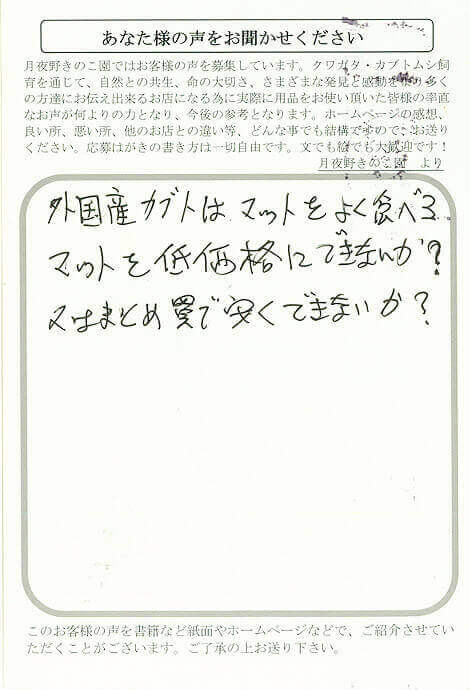 あなた様の声をお聞かせください
月夜野きのこ園ではお客様の声を募集しています。クワガタ・カブトムシ飼
育を通じて、自然との共生、命の大切さ、さまざまな発見と感動をより多く
の方達にお伝え出来るお店になる為に実際に用品をお使い頂いた皆様の率直
なお声が何よりの力となり、今後の参考となります。ホームページの感想、
良い所、悪い所、他のお店との違い等、どんな事でも結構ですので、お送り
ください。応募はがきの書き方は一切自由です。文でも絵でも大歓迎です!
月夜野きのこ園 より
外国産カブトは マットをよく食べる
マットを低価格にできないか?
又はまとめ買で安くできないか?
このお客様の声を書籍など紙面やホームページなどで、ご紹介させてい
ただくことがございます。ご了承の上お送り下さい。